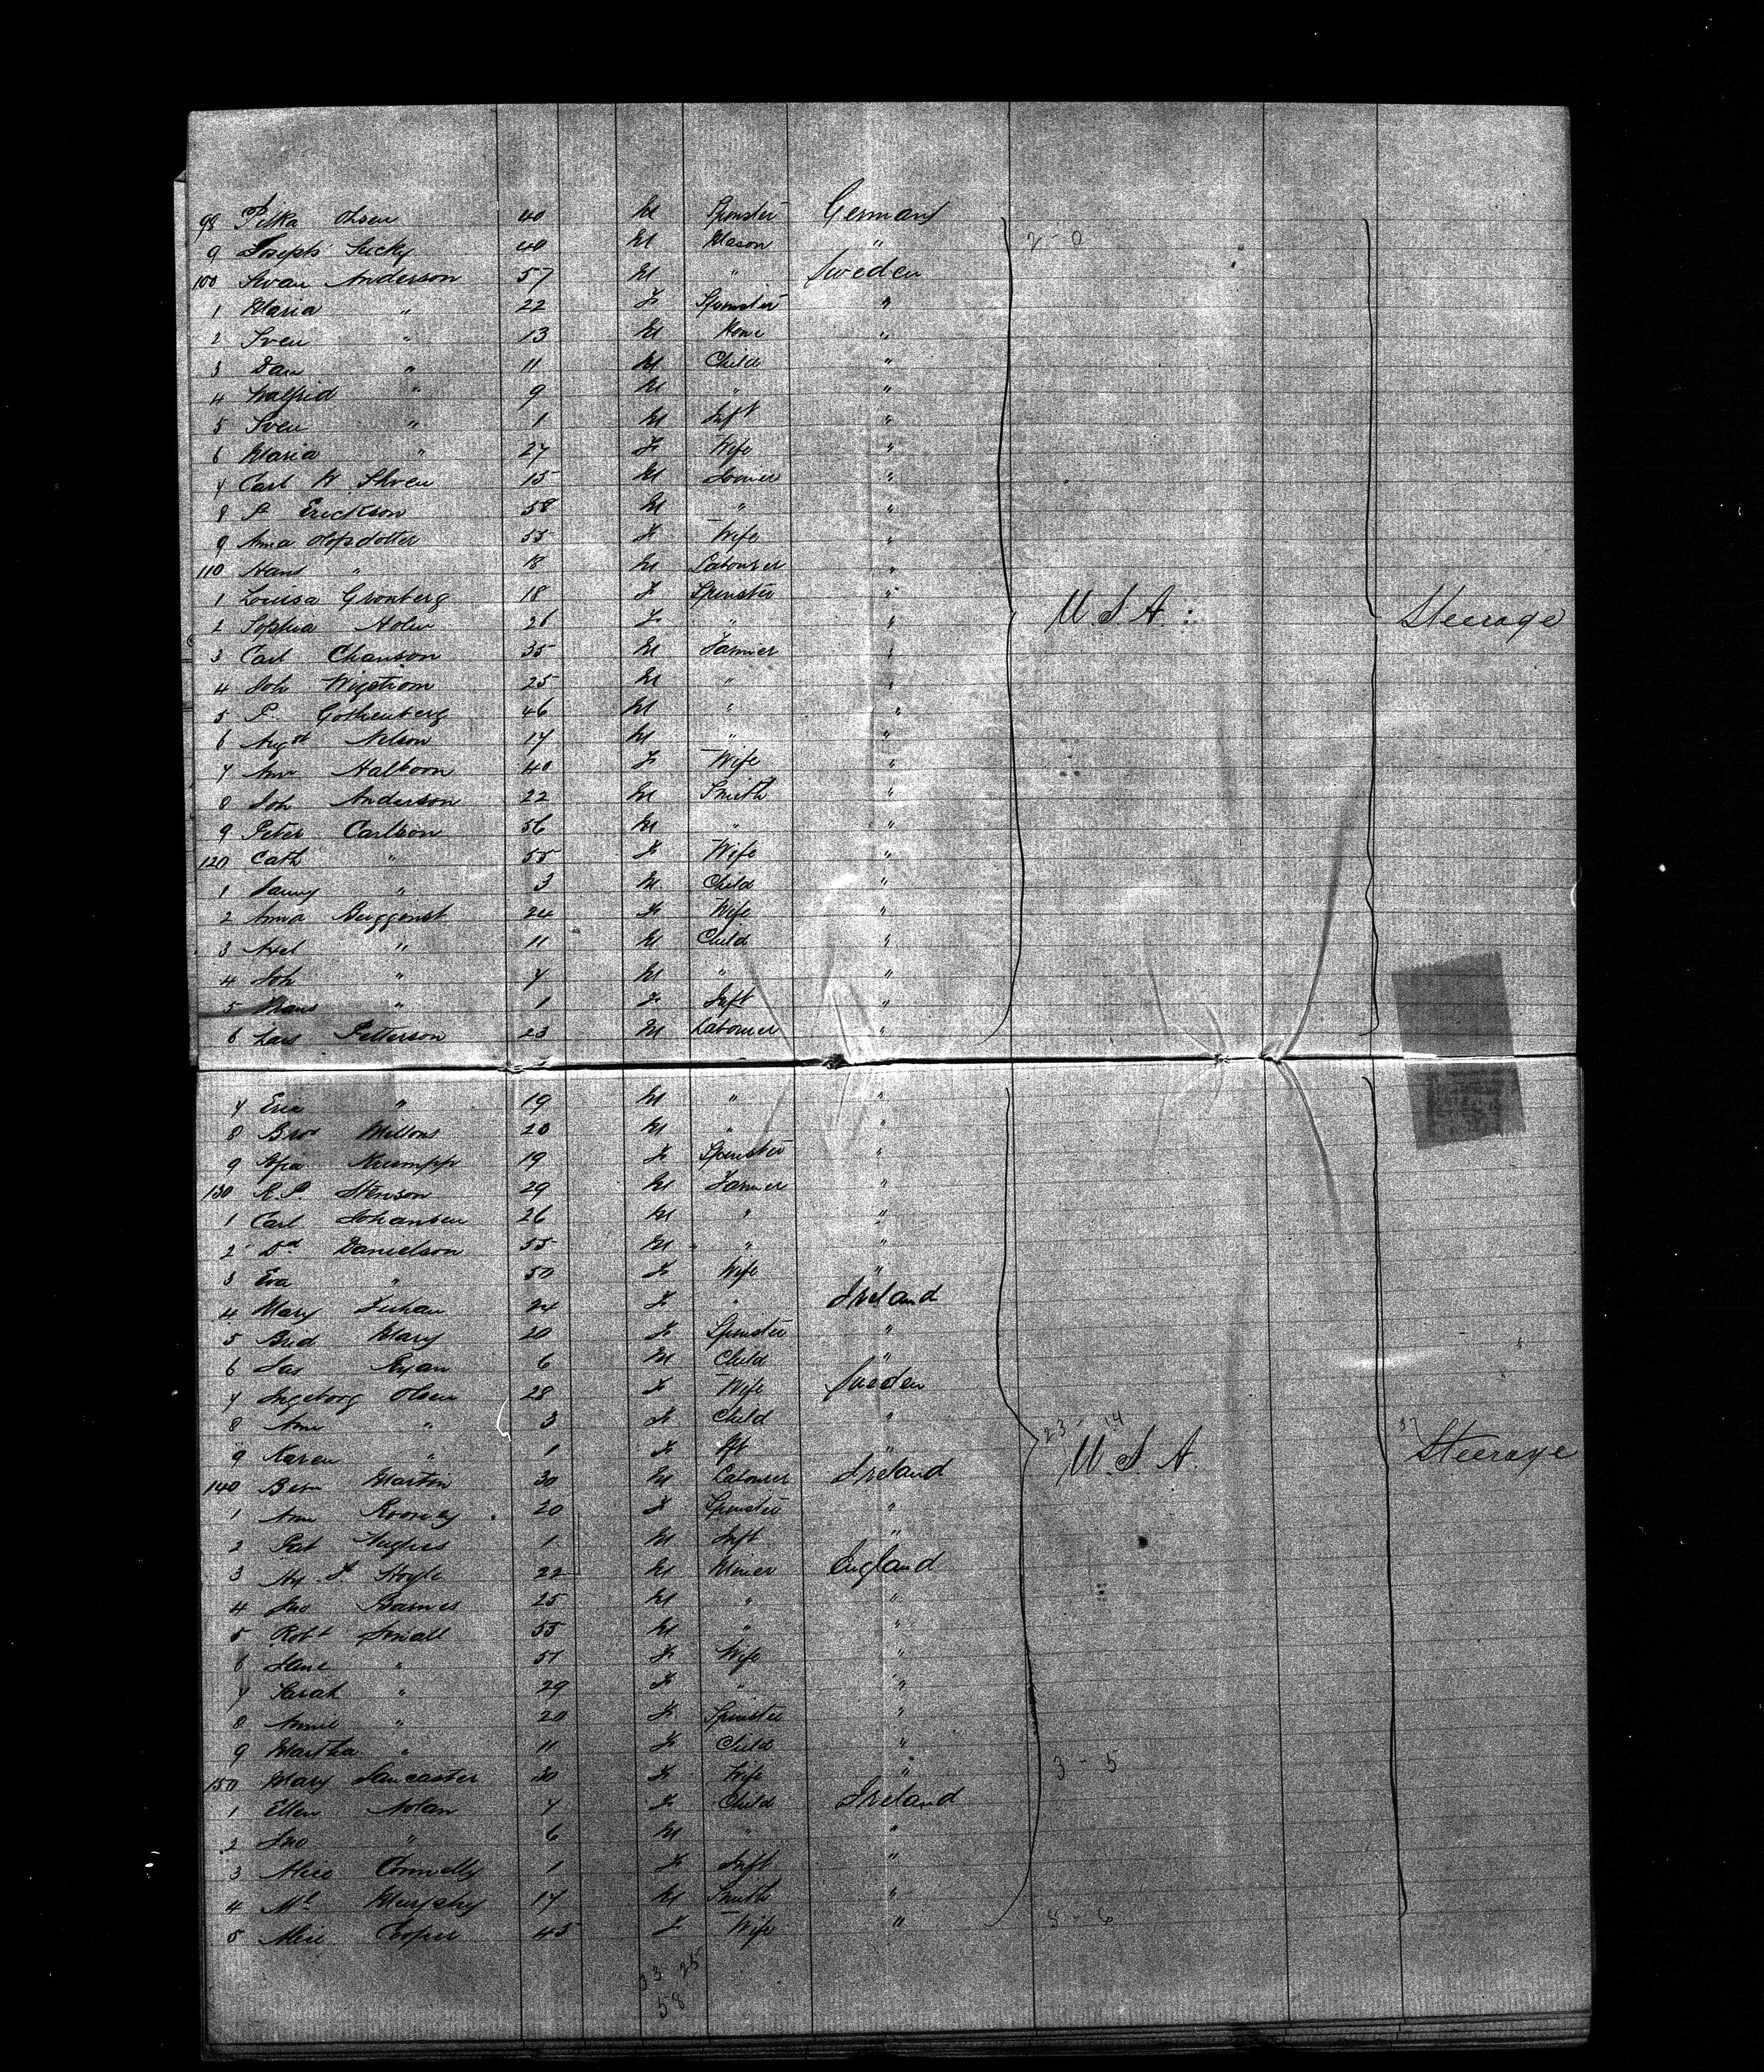 98 Petka Olsen 40 M Spinster Germany
9 Joseph Sucky 40 M Mason " 2 - 0
100 Swan Anderson 57 M " Sweden
1 Maria " 22 F Spinster "
2 Sven " 13 M None "
3 Dan " 11 M Child "
4 Walfrid " 9 M " "
5 Sven " 1 M Inft "
6 Maria " 27 F Wife "
7 Carl W 15 M "
8 P Erickson 58 M " "
9 Anna Olofsdotter 55 F Wife "
110 Hans " 18 M Labourer "
1 Louisa Gronberg 18 F Spinster "
2 Sophia Holm 26 F " " U.S.A: Steerage
3 Carl Chanson 35 M Farmer "
4 Joh Wigstrom 25 M " "
5 P. Gothenberg 46 M " "
6 Augst Nelson 17 M " "
7 Ann 40 F Wife "
8 Joh Anderson 22 M Smith "
9 Peter Carlson 56 M " "
120 Cath " 55 F Wife "
1 " 3 M Child "
2 Anna 24 F Wife "
3 Axel " 11 M Child "
4 Joh " 7 M " "
5 Hans " 1 F Inft "
6 Lars Petterson 23 M Labourer "
7 Eric " 19 M " "
8 20 M " "
9 19 F Spinster "
130 Stenson 29 M Farmer "
1 Carl Johansen 26 M " "
2 Dd Danielson 55 M " "
3 Eva " 50 F Wife "
4 Mary 24 F " Ireland
5 Brid Mary 20 F Spinster "
6 Jas Ryan 6 M Child "
7 Ingeborg Olsen 28 F Wife Sweden
8 Ann " 3 F Child " 23 - 14
9 Karen " 1 F Ift " U.S.A. Steerage
140 Bern Martin 30 M Labourer Ireland
1 Ann Rooney 20 F Spinster "
2 Pat Hughes 1 M Inft "
3 Hoyle 22 M Miner England
4 Jno Barnes 25 M " "
5 Robt Small 55 M " "
6 Jane " 51 F Wife "
7 Sarah " 29 F " "
8 Annie " 20 F Spinster "
9 Martha " 11 F Child "
150 Mary Lancaster 30 F Wife " 3 - 5
1 Ellen Nolan 7 F Child Ireland
2 Jno " 6 M " "
3 Alice Connelly 1 F Inft "
4 Ml Murphy 17 M Smith "
5 Alice Cooper 45 F Wife " 3 - 6
33 25
58